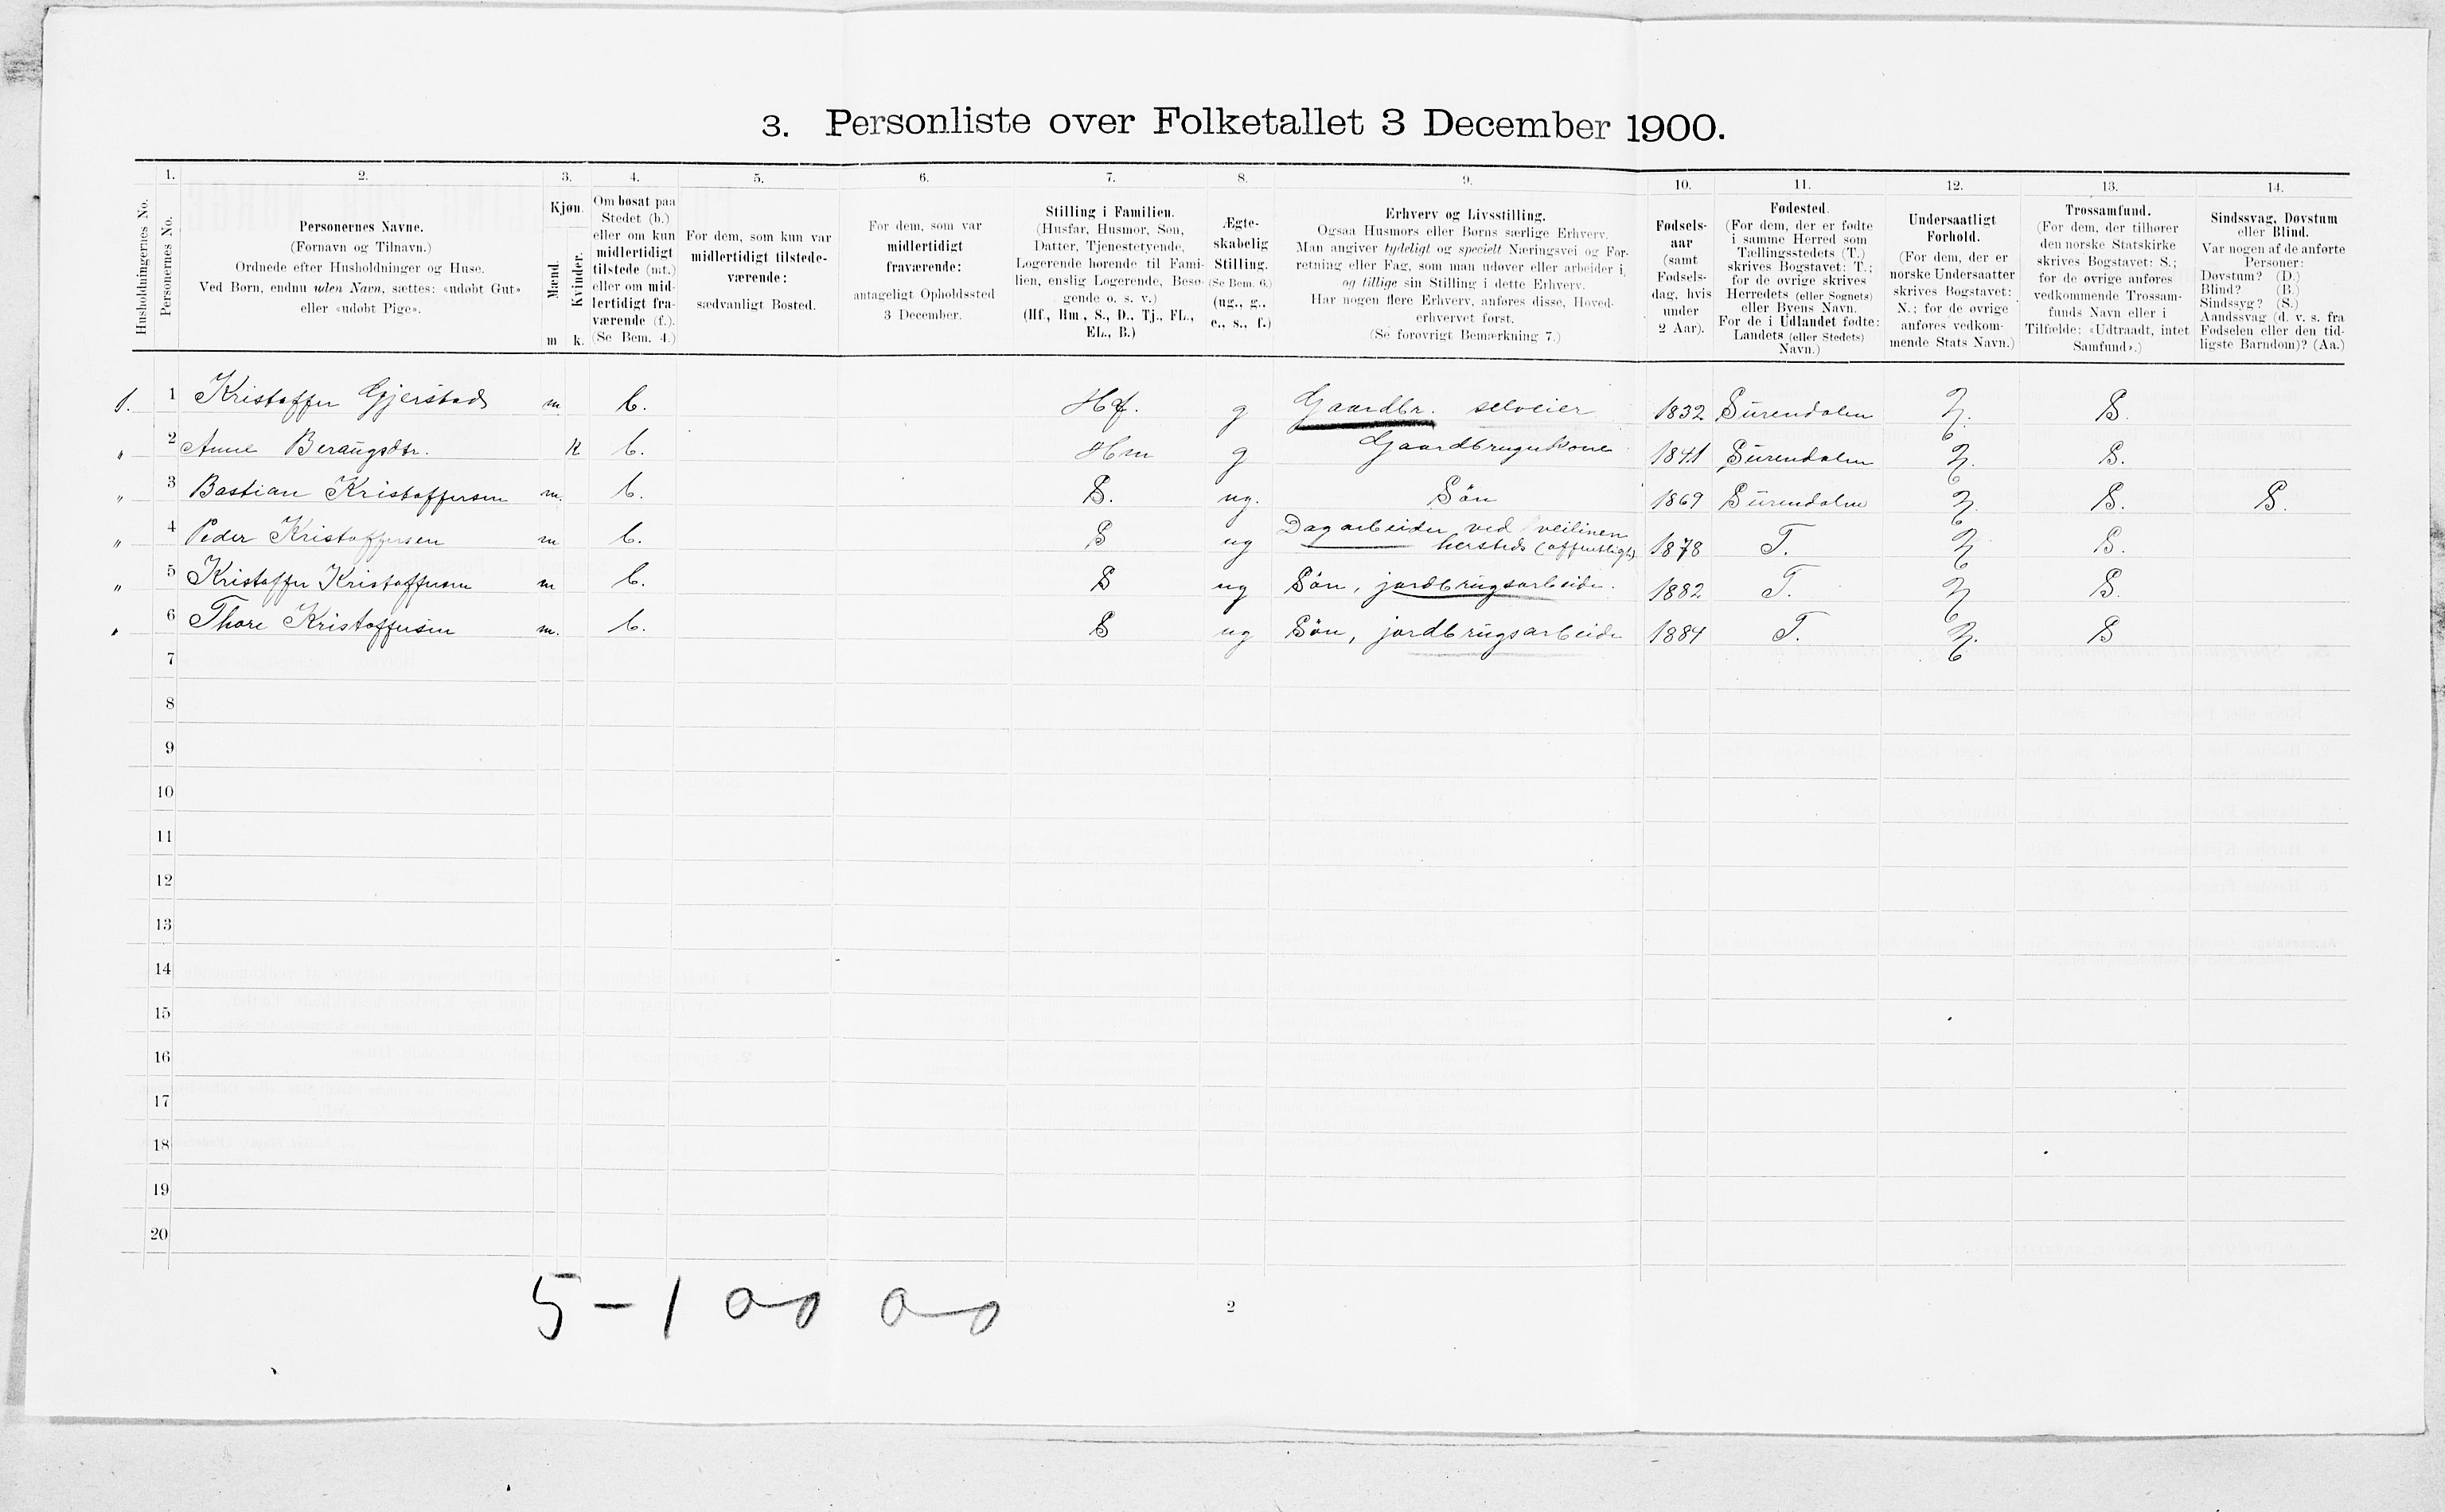 3. Personliste over Folketallet 3 December 1900.
1. 2. 3. 4. 5. 6. 7. 8. 9. 10. 11. 12. 13. 14.
Husholdningernes No.
Personernes No.
Personernes Navne.
(Fornavn og Tilnavn.)
Ordnede efter Husholdninger og Huse.
Ved Børn, endnu uden Navn, sættes: «udøbt Gut»
eller «udøbt Pige».
Kjøn.
Mænd.
Kvinder.
m k.
Om bosat paa
Stedet (b.)
eller om kun
midlertidigt
tilstede (mt.)
eller om mid-
lertidigt fra-
værende (f.).
(Se Bem. 4.)
For dem, som kun var
midlertidigt tilstede-
værende:
sædvanligt Bosted.
For dem, som var
midlertidigt
fraværende:
antageligt Opholdssted
3 December.
Stilling i Familien.
(Husfar, Husmor, Søn,
Datter, Tjenestetyende,
Logerende hørende til Fami-
lien, enslig Logerende, Besø-
gende o. s. v.)
(Hf., Hm., S., D., Tj., FL.,
EL., B.)
Ægte-
skabelig
Stilling.
(Se Bem. 6.)
(ug., g.,
e., s., f.)
Erhverv og Livsstilling.
Ogsaa Husmors eller Børns særlige Erhverv.
Man angiver tydeligt og specielt Næringsvei og For-
retning eller Fag, som man udøver eller arbeider i,
og tillige sin Stilling i dette Erhverv.
Har nogen flere Erhverv, anføres disse, Hoved-
erhvervet først.
(Se forøvrigt Bemærkning 7.)
Fødsels-
aar
(samt
Fødsels-
dag, hvis
under
2 Aar).
Fødested.
(For dem, der er fødte
i samme Herred som
Tællingsstedets (T.)
skrives Bogstavet: T.;
for de øvrige skrives
Herredets (eller Sognets)
eller Byens Navn.
For de i Udlandet fødte:
Landets (eller Stedets)
Navn.)
Undersaatligt
Forhold.
(For dem, der er
norske Undersaatter
skrives Bogstavet:
N.; for de øvrige
anføres vedkom-
mende Stats Navn.)
Trossamfund.
(For dem, der tilhører
den norske Statskirke
skrives Bogstavet: S.;
for de øvrige anføres
vedkommende Trossam-
funds Navn eller i
Tilfælde: «Udtraadt, intet
Samfund».)
Sindssvag, Døvstum
eller Blind.
Var nogen af de anførte
Personer:
Døvstum? (D.)
Blind? (B.)
Sindssyg? (S.)
Aandssvag (d. v. s. fra
Fødselen eller den tid-
ligste Barndom)? (Aa.)
1. 1 Kristoffer Gjerstad m. b. Hf. g Gaardbr. selveier 1832 Surendalen N. S.
" 2 Anne Beraugsdtr. k b. Hm g Gaardbrugerkone 1841 Surendalen N. S.
" 3 Bastian Kristoffersen m. b. S. ug. Søn 1869 Surendalen N. S. S.
" 4 Peder Kristoffersen m b. S ug Dagarbeider ved veilinen
hersteds (offentligt) 1878 T. N S.
" 5 Kristoffer Kristoffersen m b. S ug Søn, jordbrugsarbeider. 1882 T. N S.
" 6 Thore Kristoffersen m. b. S ug Søn, jordbrugsarbeider 1884 T. N. S
7
8
9
10
11
12
13
14
15
16
17
18
19
20
5 - 1 0-0 0-0
2